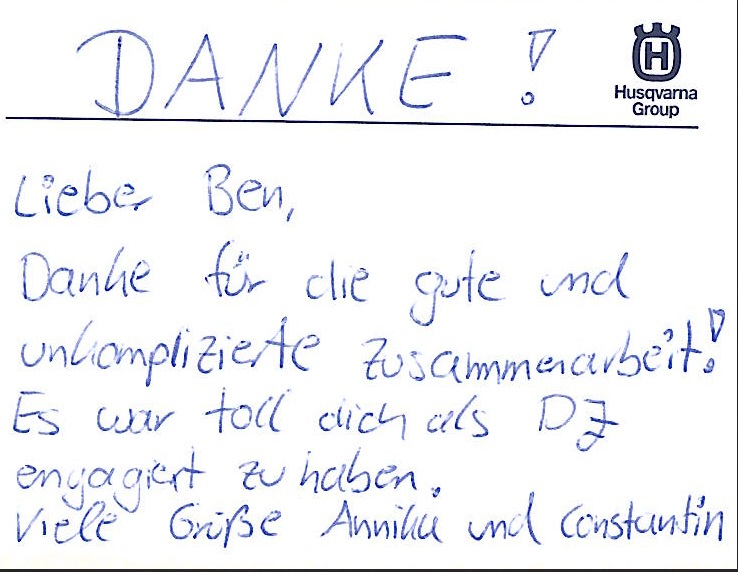 DANKE!
Husqvarna
Group
Lieber Ben,
Danke für die gute und
unkomplizierte Zusammenarbeit!
Es war toll dich als DJ
engagiert zu haben.
Viele Grüße Annika und Constantin